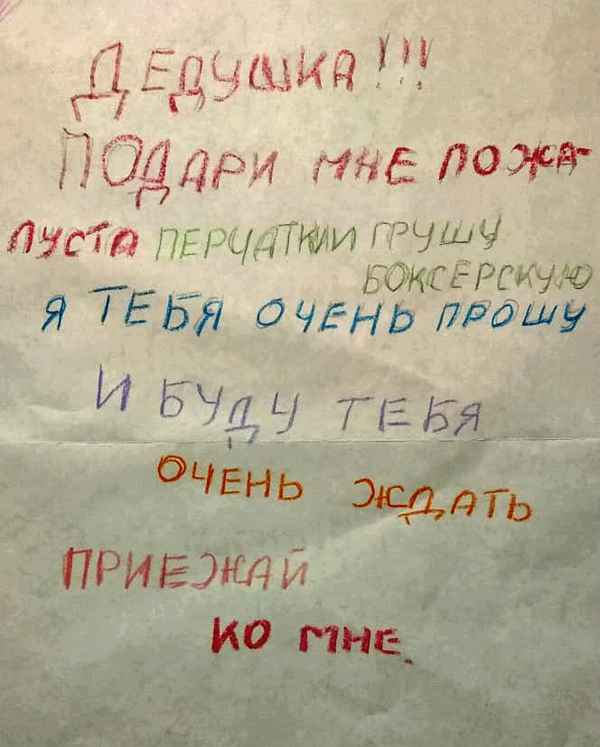 ДЕДУШКА!!!
ПОДАРИ МНЕ ПОЖА-
ЛУСТА ПЕРЧАТКИ И ГРУШУ
БОКСЕРСКУЮ
Я ТЕБЯ ОЧЕНЬ ПРОШУ
И БУДУ ТЕБЯ
ОЧЕНЬ ЖДАТЬ
ПРИЕЗЖАЙ
КО МНЕ.